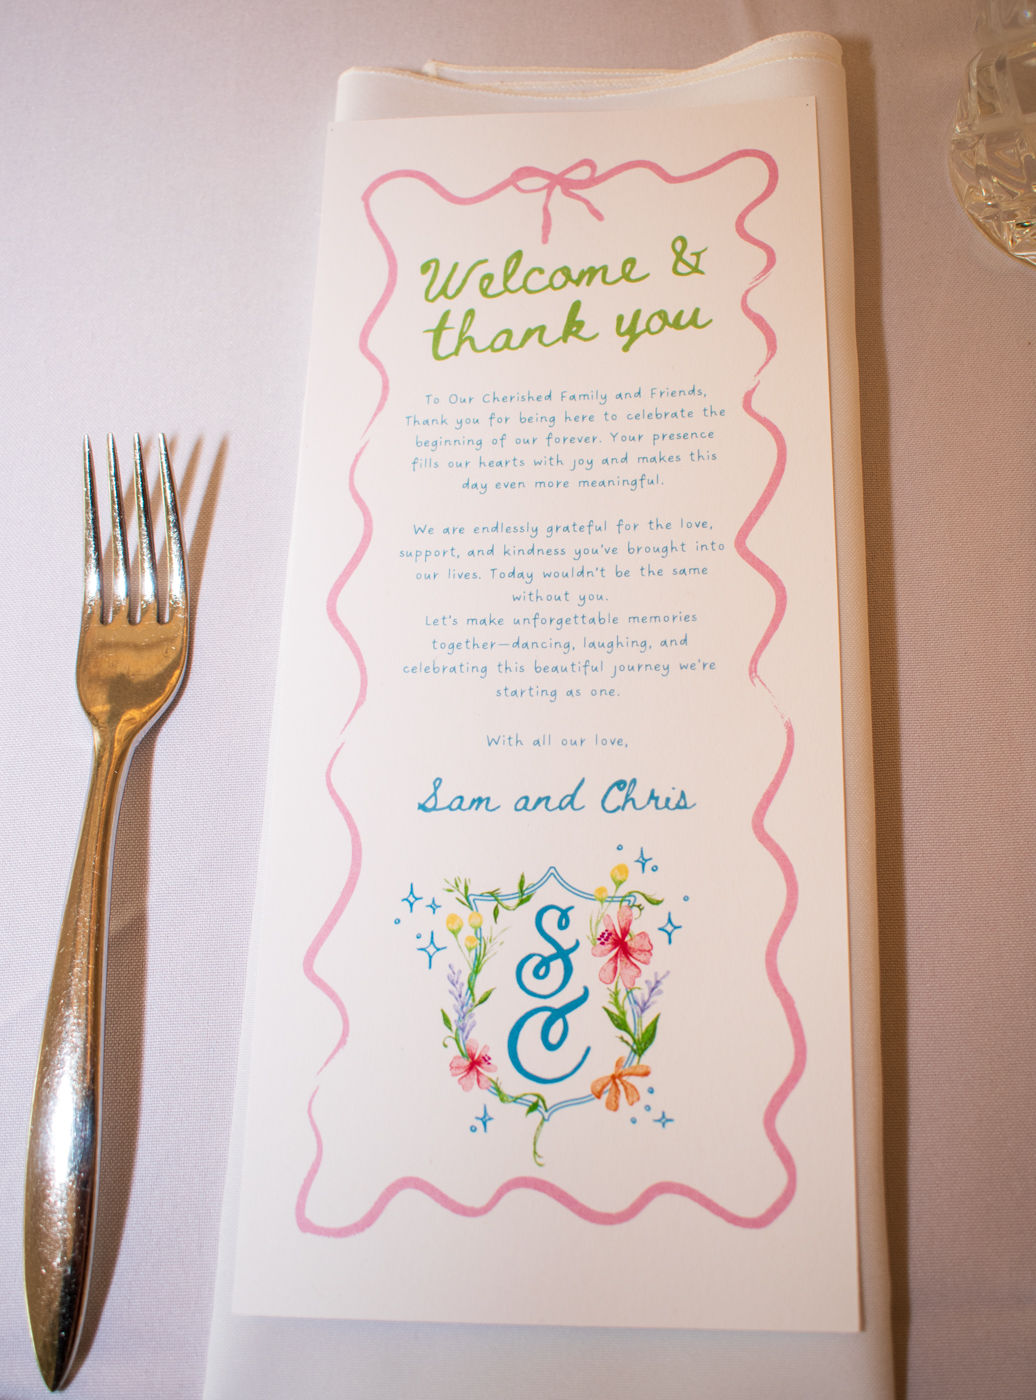 Welcome &
thank you
To Our Cherished Family and Friends,
Thank you for being here to celebrate the
beginning of our forever. Your presence
fills our hearts with joy and makes this
day even more meaningful.
We are endlessly grateful for the love,
support, and kindness you've brought into
our lives. Today wouldn't be the same
without you.
Let's make unforgettable memories
together—dancing, laughing, and
celebrating this beautiful journey we're
starting as one.
With all our love,
Sam and Chris
S
C